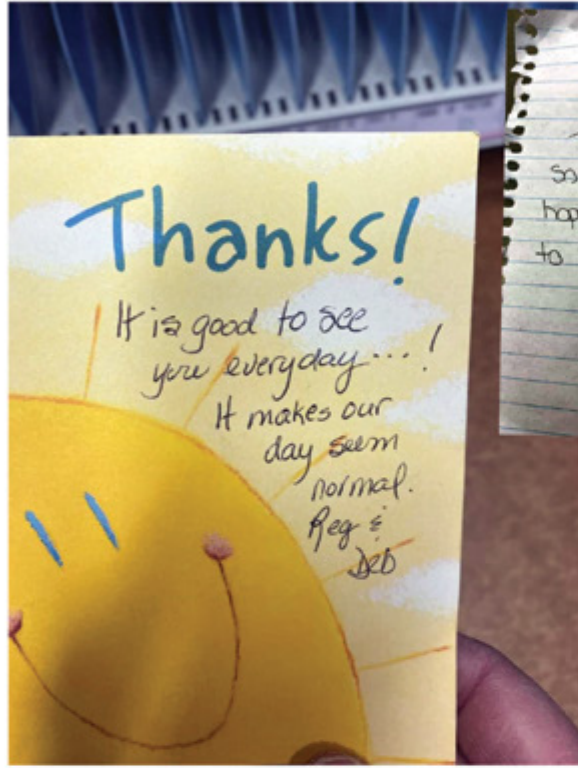 Thanks!
It is good to see
you everyday...!
It makes our
day seem
normal.
Reg &
Deb
so
hop
to